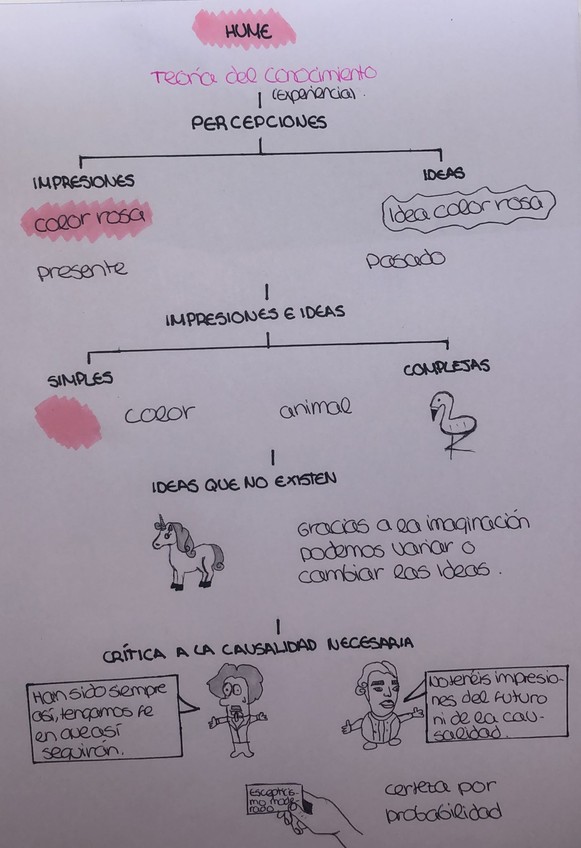 HUME
Teoría del conocimiento
(experiencia).
PERCEPCIONES
IMPRESIONES
IDEAS
color rosa
Idea color rosa
presente
pasado
IMPRESIONES E IDEAS
SIMPLES
COMPLEJAS
color
animal
IDEAS QUE NO EXISTEN
Gracias a la imaginación
podemos variar o
cambiar las ideas.
CRÍTICA A LA CAUSALIDAD NECESARIA
Han sido siempre
así, tengamos fe
en que así
seguirán.
No tenéis impresio-
nes del futuro
ni de la cau-
salidad.
Escepticis-
mo mode-
rado
certeza por
probabilidad